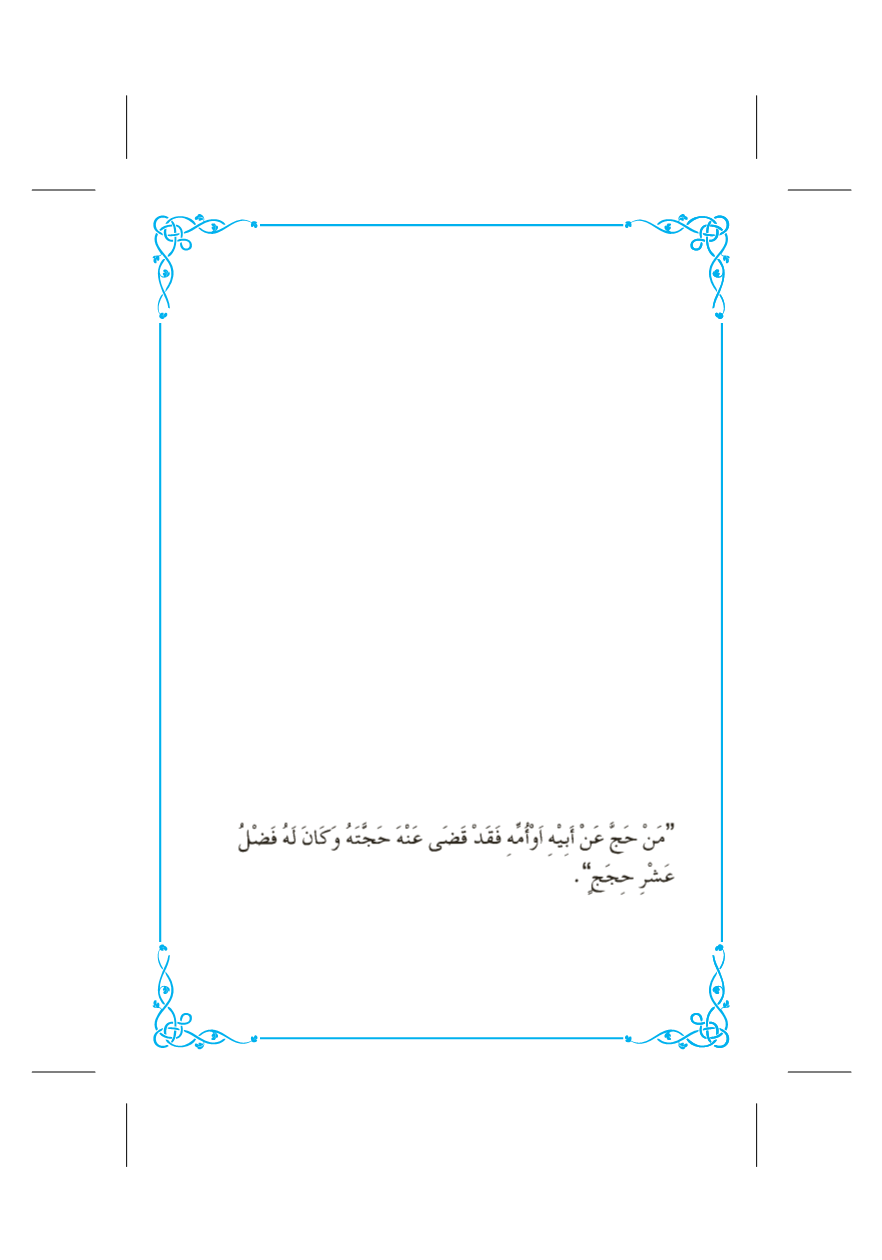 ”مَنْ حَجَّ عَنْ أَبِيْهِ اَوْأُمِّهِ فَقَدْ قَضَى عَنْهَ حَجَّتَهُ وَكَانَ لَهُ فَضْلُ
عَشْرِ حِجَجٍ“.